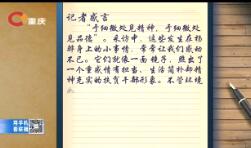 重庆
记者感言
“于细微处见精神，于细微处
见品德”。采访中，这些发生在杨
骅身上的小事情，常常让我们感动
不已。它们就像一面镜子，照出了
一个重感情有担当、生活简朴却精
神充实的扶贫干部形象。不管环境
用手机
看联播